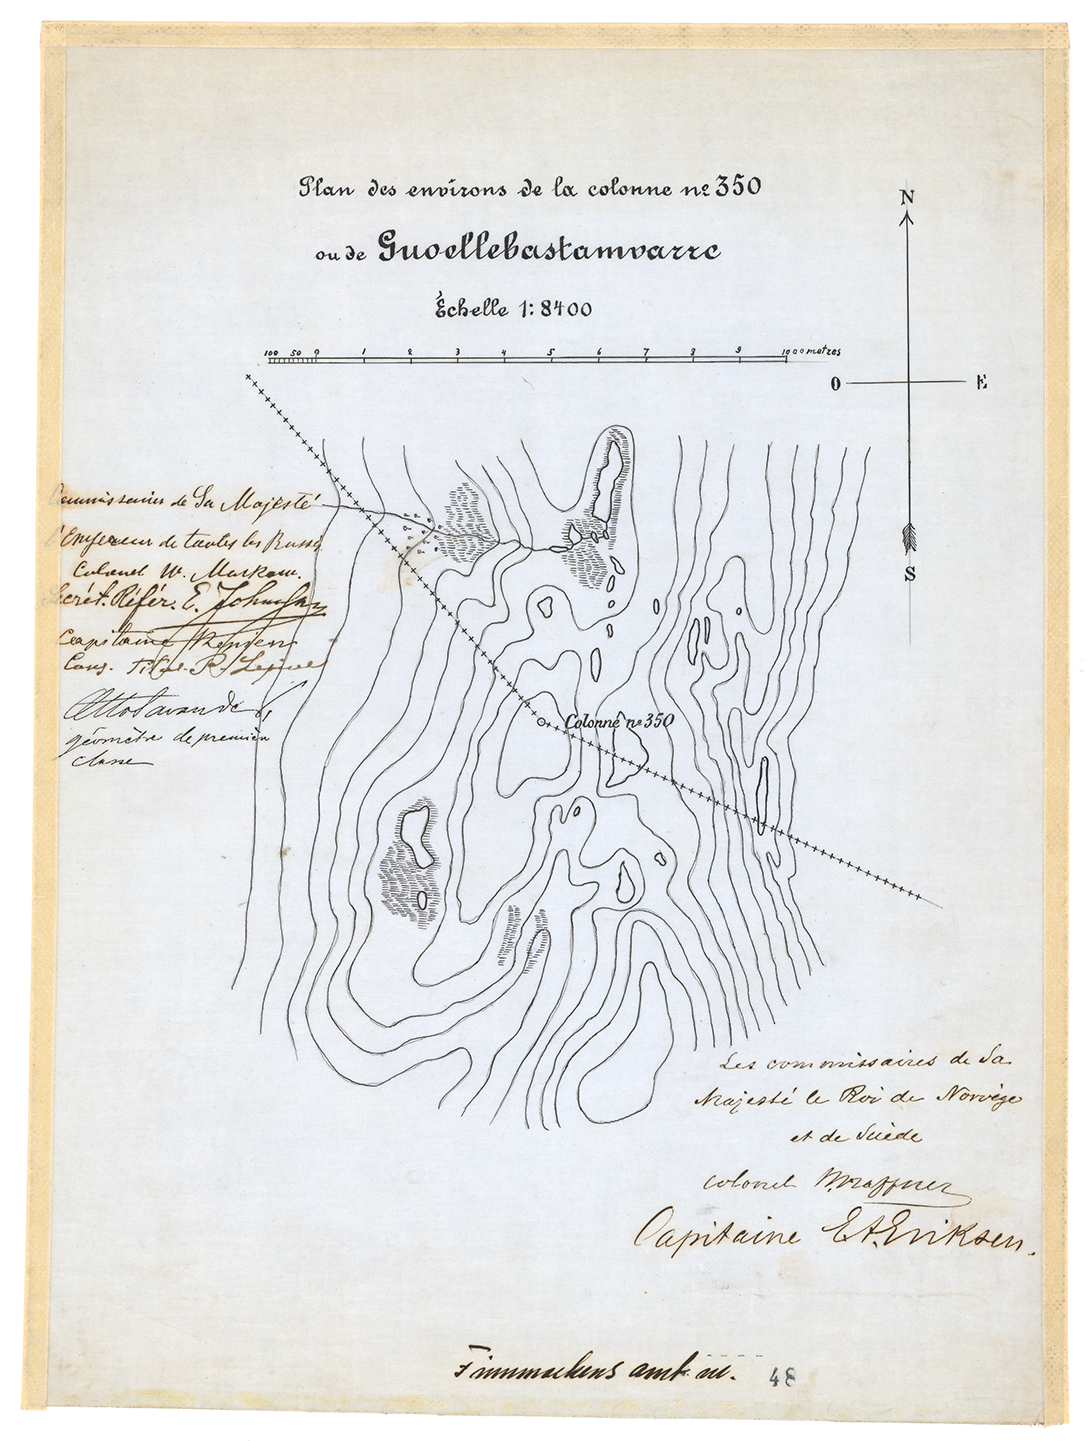 Plan des environs de la colonne nº 350
ou de Guoellebastamvarre
Échelle 1:8400
100 50 0 1 2 3 4 5 6 7 8 9 1000 metres
N
O E
S
Commissaires de Sa Majesté
l'Empereur de toutes les Russ
Colonel W. Markow.
Secrét. Référ. E.
Capitaine
Cons. Tit.
géomètre de première
classe
Colonne nº 350
Les commissaires de Sa
Majesté le Roi de Norvège
et de Suède
colonel
Capitaine E A. Eriksen.
Finmarkens amt nr. 48